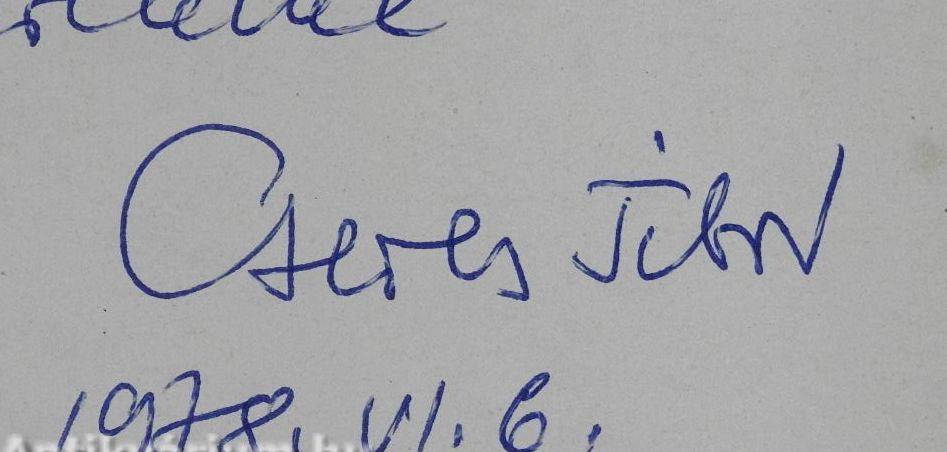 Cseres Tibor
1978. VI. 6.
Antikvárium.hu